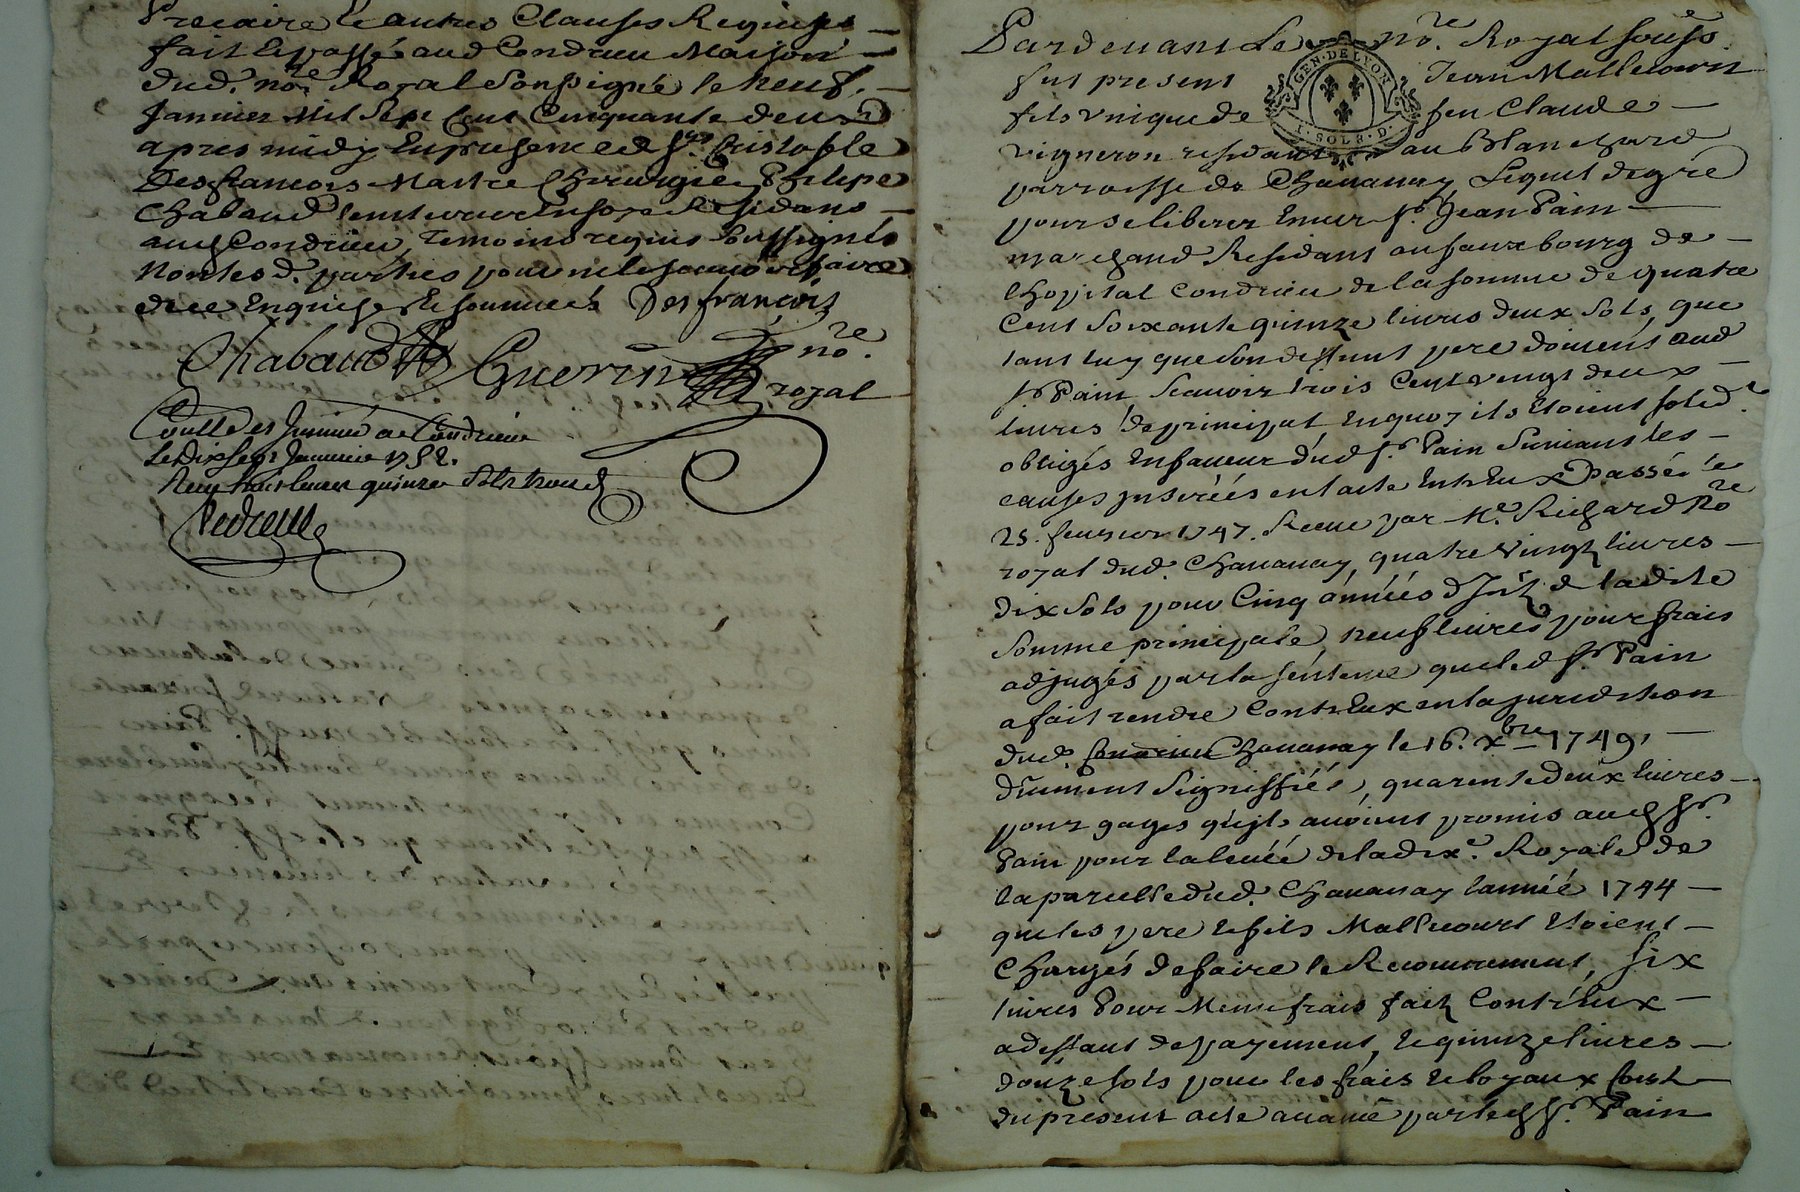 Precaire & autres Clauses Requises
fait & passé aud Condrieu Maison
dud. nore Royal Soussigné le neuf.
Janvier Mil Sept Cent Cinquante deux
apres midy En presence de Sr. Cristofle
Desfrancois Maitre Chirurgien & Philipe
Chabaud Residans
aud Condrieu, temoins requis Soussignés
non lesd. parties pour ne le scavoir faire
de ce Enquises & Sommées Desfrançois
Chabaud Guerin nore.
royal
Controllé & Insinué a Condrieu
Le Dix sept Janvier 1752.
Reçu trois livres quinze Sols
Pardevant Le nore. Royal soussé.
fut present Jean Mallecourt
fils unique de feu Claude
GEN. DE LYON
1. SOLS. D.
vigneron residant au Blanchard
parroisse de Chavanay, Lequel de gré
pour se liberer Envers Sr. Jean Pain
marchand Residant au fauxbourg de
l'hopital Condrieu de la somme de quatre
Cent Soixante quinze livres deux Sols, que
tant luy que Son deffunt pere doivent aud
Sr Pain Scavoir trois Cent vingt deux
livres de principal En quoy ils Etoient solide.
obligés En faveur dud Sr. Pain Suivant les
causes inserées en l'acte Entr'Eux Passé le
25. fevrier 1747. Receu par Me. Richard Nore
royal dud. Chavanay, quatre vingt livres
dix Sols pour Cinq années d'Intz de ladite
Somme principale, neuf livres pour frais
adjugés par la sentence que led Sr. Pain
a fait rendre Contr'Eux en la jurisdiction
dud. Condrieu Chavanay le 16. Xbre 1749,
dûment Signiffiée, quarente deux livres
pour gages qu'ils avoient promis aud Sr.
Pain pour la levée de la dixe. Royale de
la paroisse dud. Chavanay l'année 1744
que les pere & fils Mallecourt Etoient
Chargés de faire le Recouvrement, Six
livres Pour Menus frais faitz Contr'Eux
a deffaut de payement, & quinze livres
douze sols pour les frais & loyaux Couts
du present acte avancé par led Sr. Pain